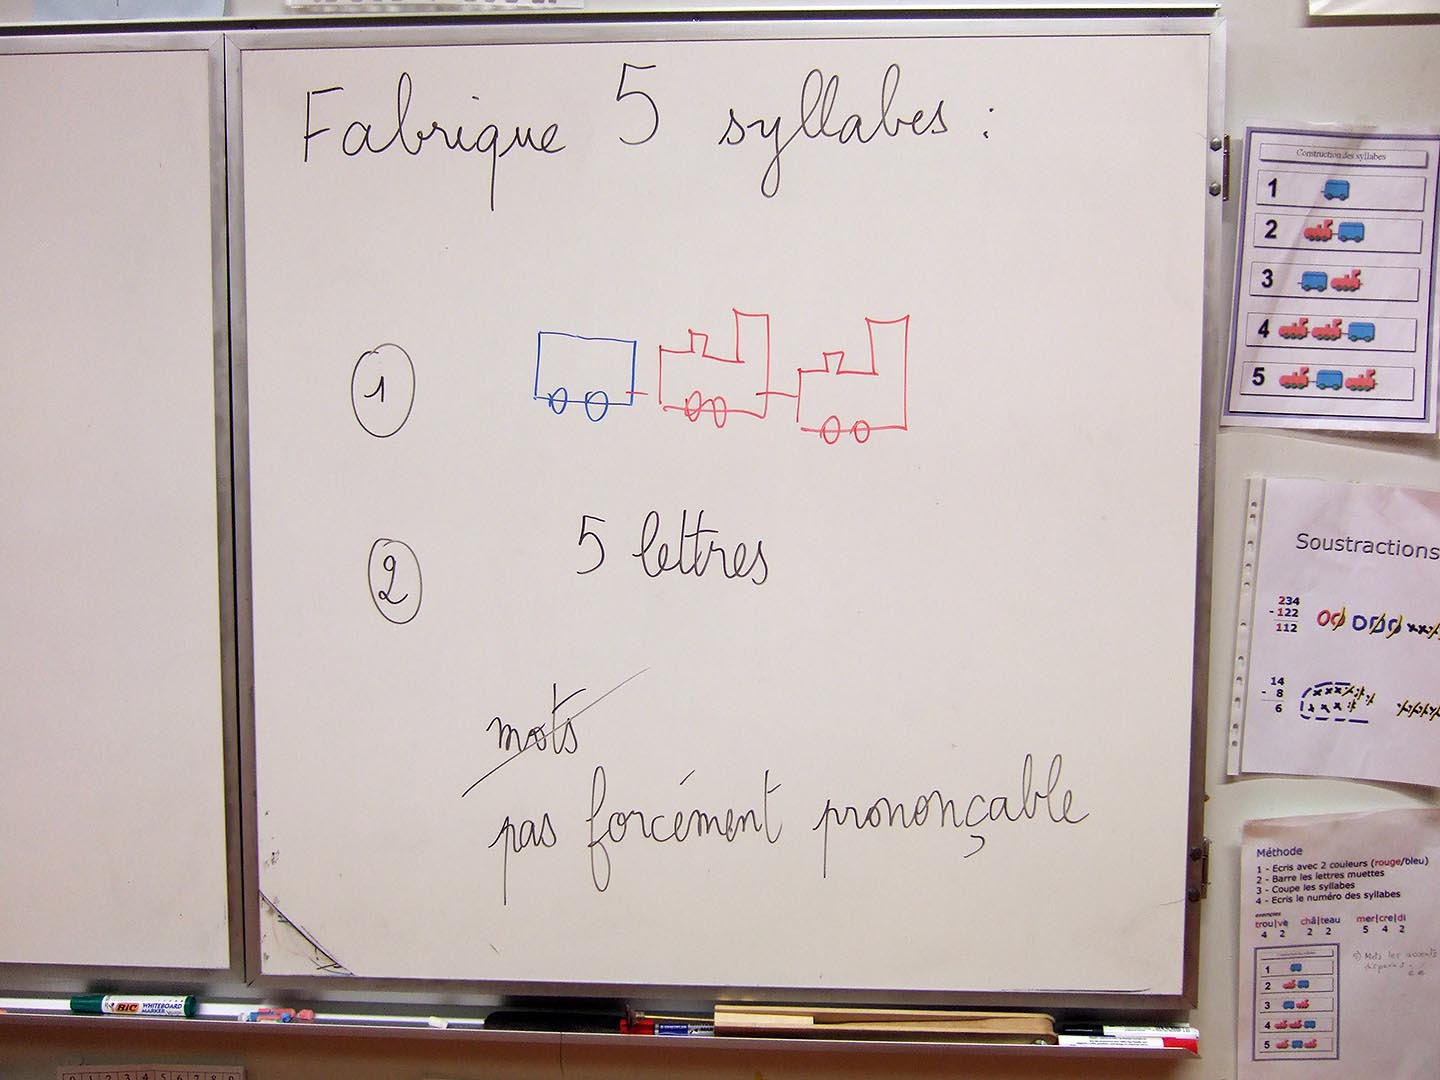 Fabrique 5 syllabes :
1
2
5 lettres
mots
pas forcément prononçable
Construction des syllabes
1
2
3
4
5
Soustractions
234
- 122
112
14
- 8
6
Méthode
1 - Ecris avec 2 couleurs (rouge/bleu)
2 - Barre les lettres muettes
3 - Coupe les syllabes
4 - Ecris le numéro des syllabes
exemples
trou|ve châ|teau mer|cre|di
4 2 2 2 5 4 2
5) Mets les accents
1
2
3
4
5
BIC WHITEBOARD MARKER
0 1 2 3 4 5 6 7 8 9